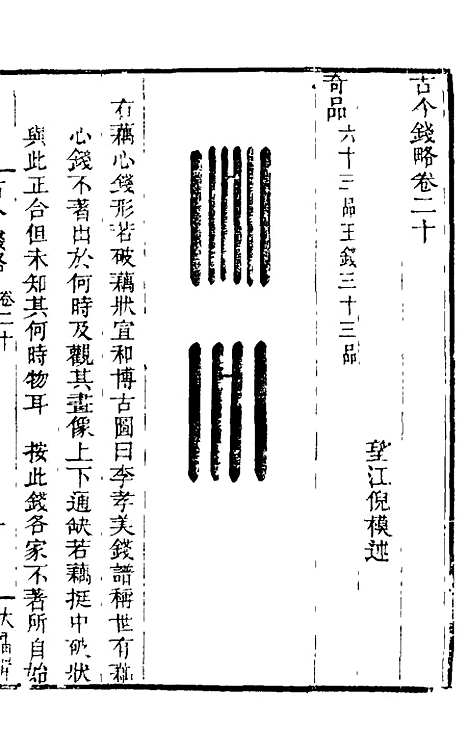 古今錢略卷二十
望江倪模述
奇品 六十三品王錢三十三品
右藕心錢形若破藕狀宜和博古圖曰李孝美錢譜稱世有藕
心錢不著出於何時及觀其畫像上下通缺若藕挺中破狀
與此正合但未知其何時物耳 按此錢各家不著所自始
卷二十